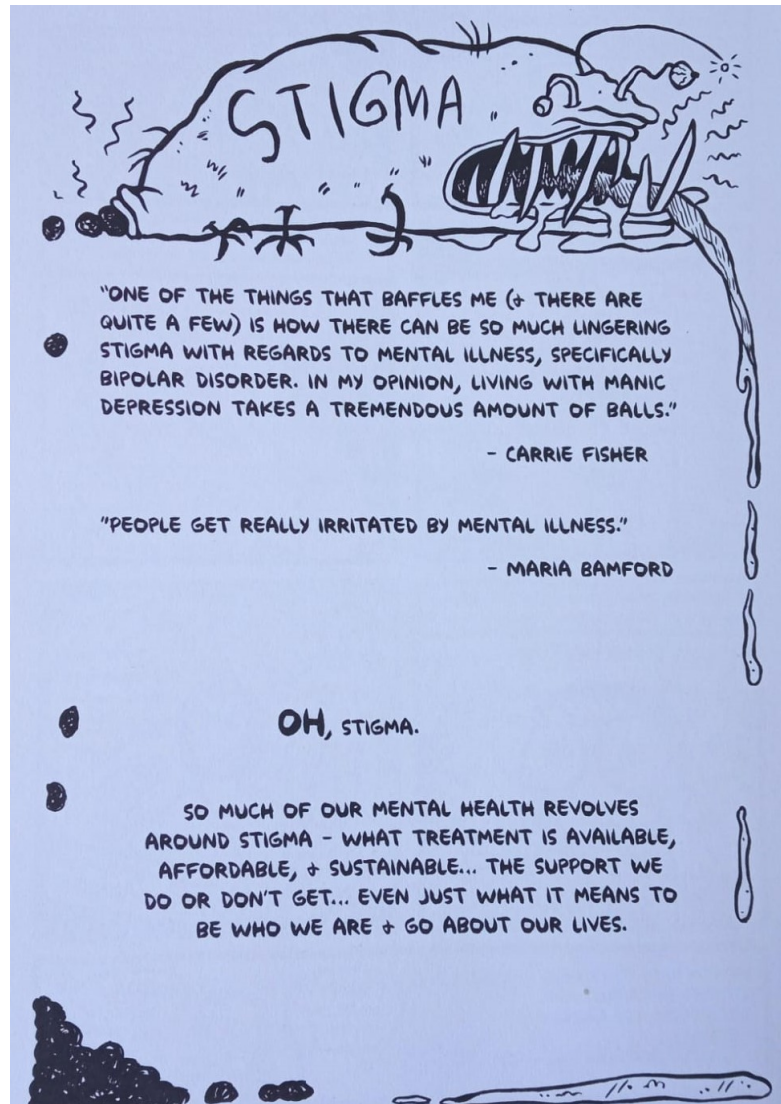 STIGMA
"ONE OF THE THINGS THAT BAFFLES ME (& THERE ARE
QUITE A FEW) IS HOW THERE CAN BE SO MUCH LINGERING
STIGMA WITH REGARDS TO MENTAL ILLNESS, SPECIFICALLY
BIPOLAR DISORDER. IN MY OPINION, LIVING WITH MANIC
DEPRESSION TAKES A TREMENDOUS AMOUNT OF BALLS."
- CARRIE FISHER
"PEOPLE GET REALLY IRRITATED BY MENTAL ILLNESS."
- MARIA BAMFORD
OH, STIGMA.
SO MUCH OF OUR MENTAL HEALTH REVOLVES
AROUND STIGMA - WHAT TREATMENT IS AVAILABLE,
AFFORDABLE, & SUSTAINABLE... THE SUPPORT WE
DO OR DON'T GET... EVEN JUST WHAT IT MEANS TO
BE WHO WE ARE & GO ABOUT OUR LIVES.